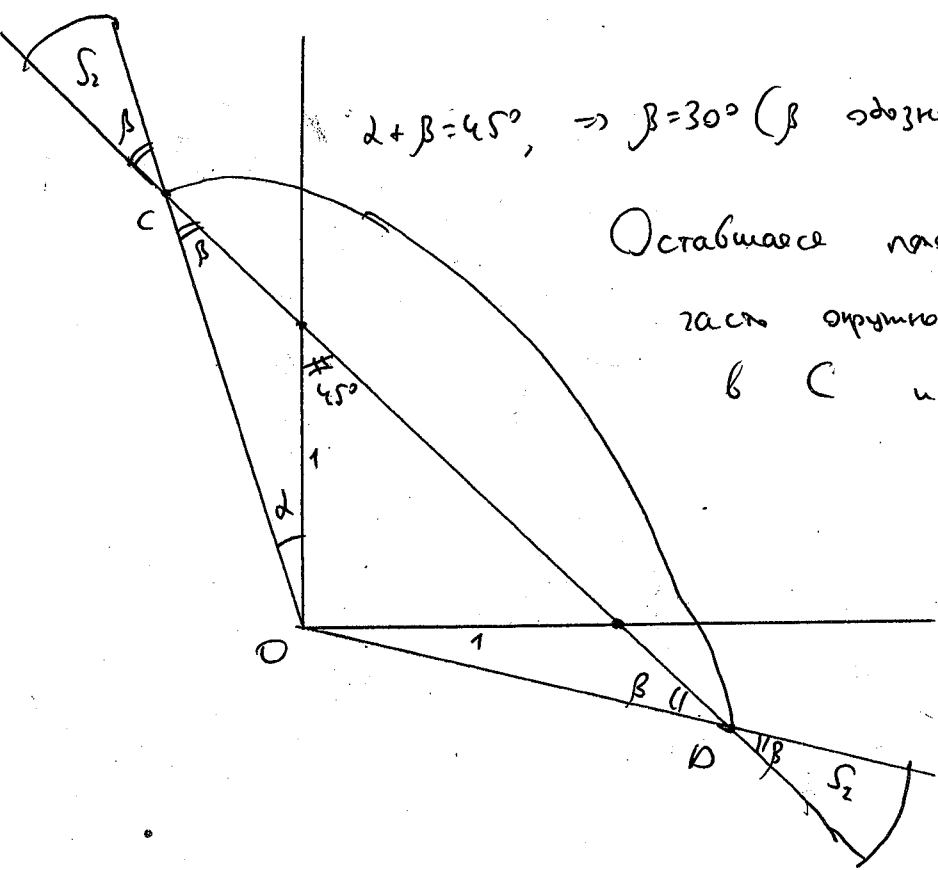 S₂
β
α + β = 45°, => β = 30° (β обозн
C
β
Оставшаеся
часть окружно
в C и
45°
1
α
O
1
β
D
β
S₂